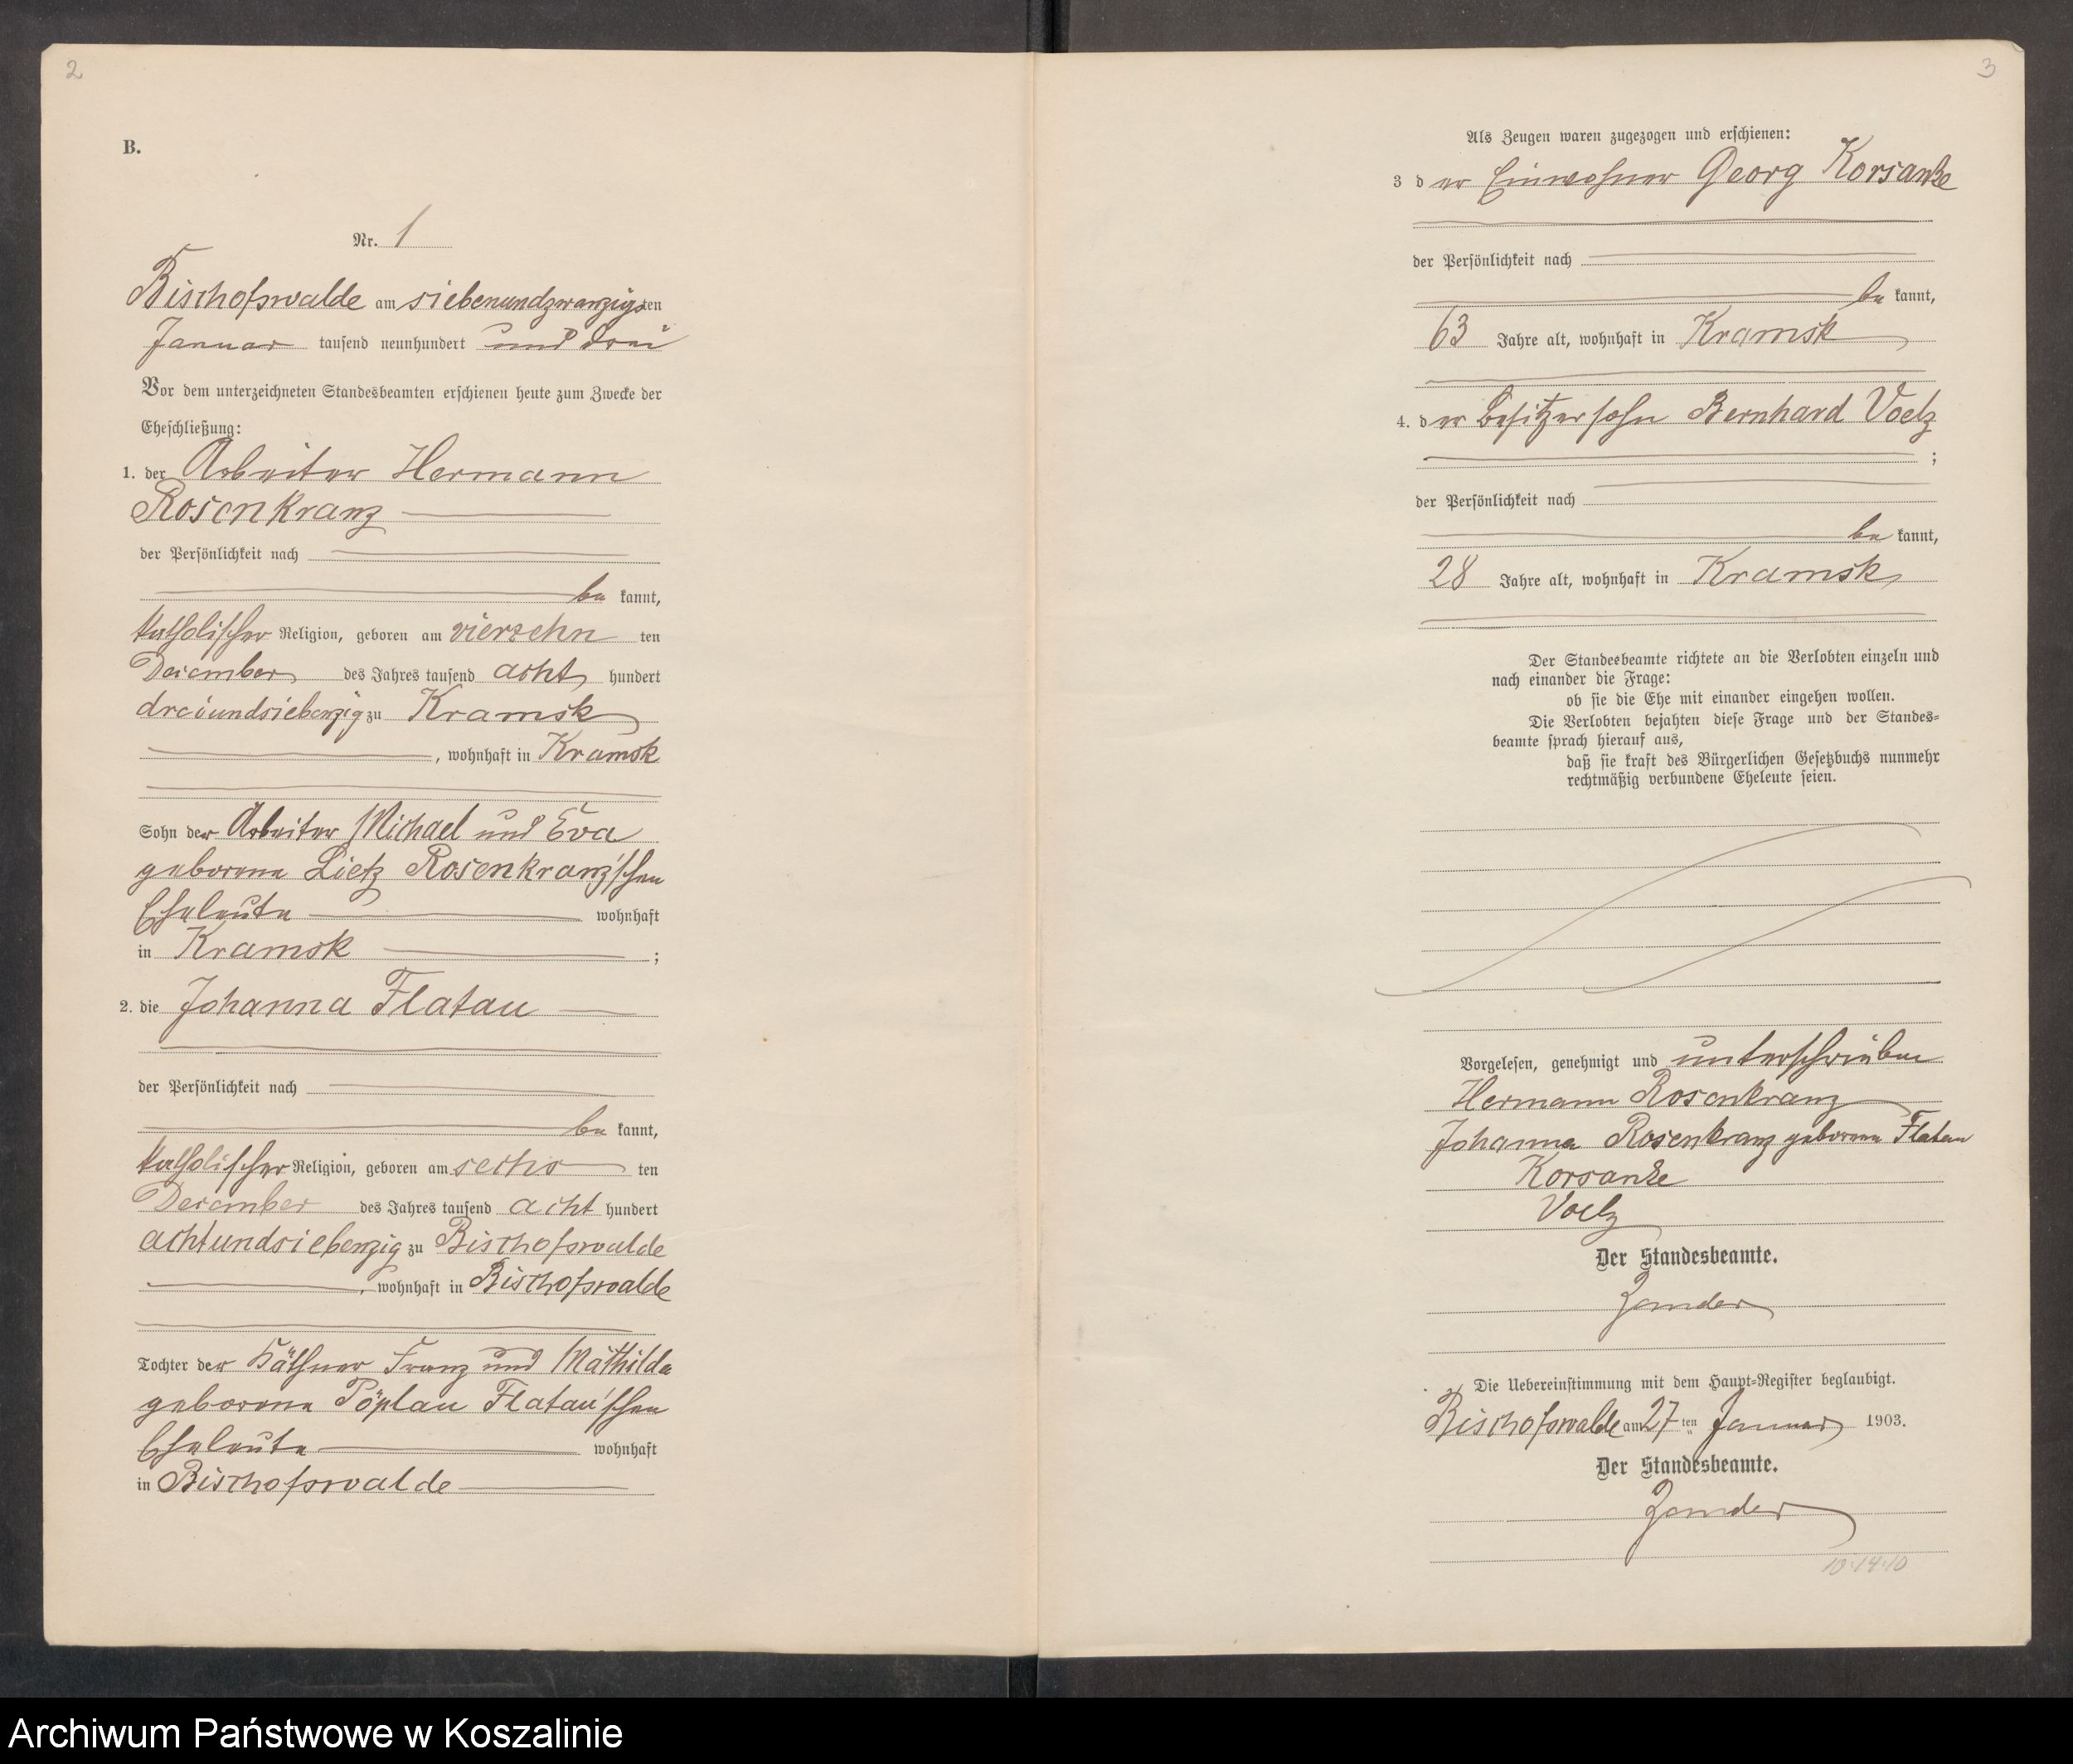 2
B.
Nr. 1
Bischofswalde am siebenundzwanzigsten
Januar tausend neunhundert und drei
Vor dem unterzeichneten Standesbeamten erschienen heute zum Zwecke der
Eheschließung:
1. der Arbeiter Hermann
Rosenkranz
der Persönlichkeit nach
be kannt,
katholischer Religion, geboren am vierzehn ten
December des Jahres tausend acht hundert
dreiundsiebenzig zu Kramsk
, wohnhaft in Kramsk
Sohn der Arbeiter Michael und Eva
geborene Lietz Rosenkranz'schen
Eheleute wohnhaft
in Kramsk ;
2. die Johanna Flatau
der Persönlichkeit nach
be kannt,
katholischer Religion, geboren am sechs ten
December des Jahres tausend acht hundert
achtundsiebenzig zu Bischofswalde
, wohnhaft in Bischofswalde
Tochter der Käthner Franz und Mathilde
geborene Pöplau Flatau'schen
Eheleute wohnhaft
in Bischofswalde
3
Als Zeugen waren zugezogen und erschienen:
3 der Einwohner Georg Korsanke
der Persönlichkeit nach
be kannt,
63 Jahre alt, wohnhaft in Kramsk
4. der Besitzersohn Bernhard Voelz
;
der Persönlichkeit nach
be kannt,
28 Jahre alt, wohnhaft in Kramsk
Der Standesbeamte richtete an die Verlobten einzeln und
nach einander die Frage:
ob sie die Ehe mit einander eingehen wollen.
Die Verlobten bejahten diese Frage und der Standes=
beamte sprach hierauf aus,
daß sie kraft des Bürgerlichen Gesetzbuchs nunmehr
rechtmäßig verbundene Eheleute seien.
Vorgelesen, genehmigt und unterschrieben
Hermann Rosenkranz
Johanna Rosenkranz geborene Flatau
Korsanke
Voelz
Der Standesbeamte.
Zander
Die Uebereinstimmung mit dem Haupt=Register beglaubigt.
Bischofswalde am 27 ten Januar 1903.
Der Standesbeamte.
Zander
10.14.10
Archiwum Państwowe w Koszalinie